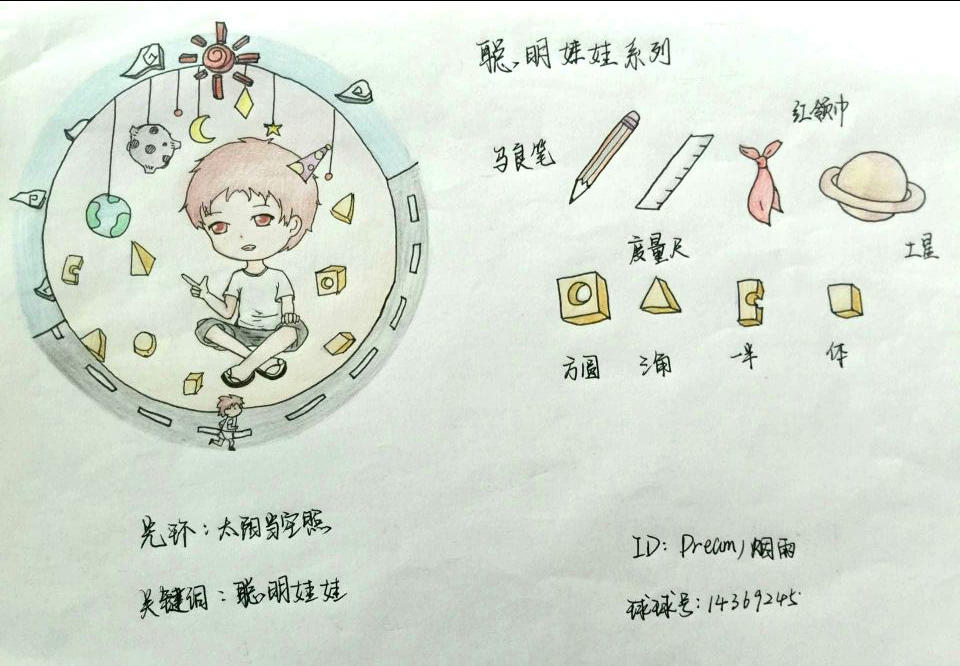 聪明娃娃系列
红领巾
马良笔
度量尺
土星
方圆 三角 一半 体
光环：太阳当空照
关键词：聪明娃娃
ID：Dream丿烟雨
球球号：14369245